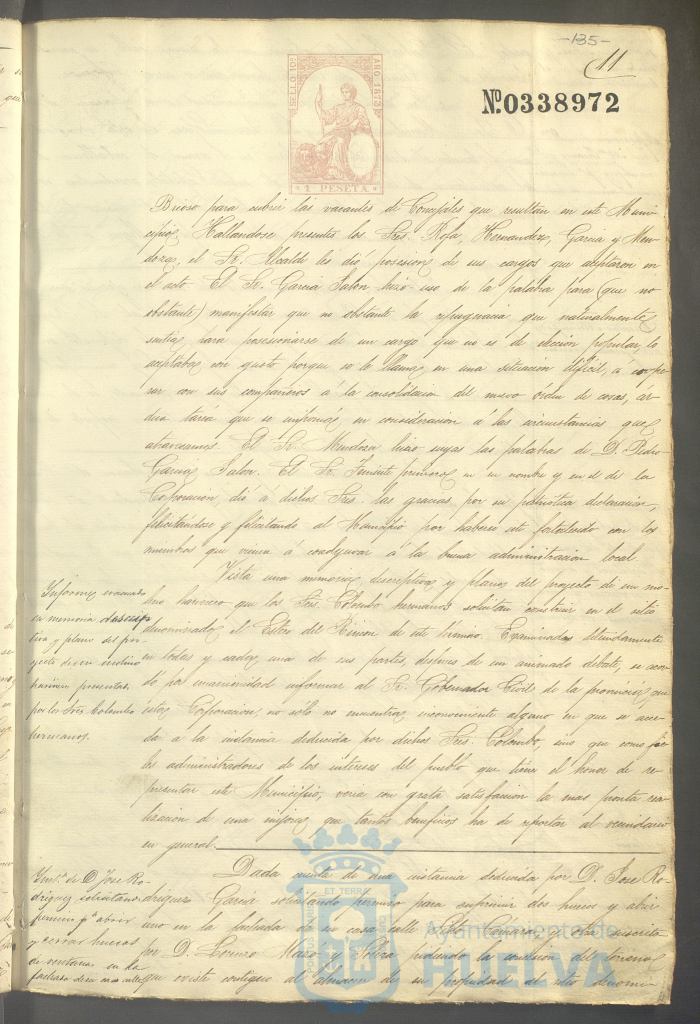 -135-
11
SELLO 10º AÑO 1873
1 PESETA
Nº 0338972
Brioso para cubrir las vacantes de Concejales que resultan en este Muni-
cipio. Hallandose presentes los Sres. Rofa, Hernandez, Garcia y Men-
doza, el Sr. Alcalde les dió posesion de sus cargos que aceptaron en
el acto. El Sr. Garcia Jalon hizo uso de la palabra para (que no
obstante) manifestar que no obstante la repugnacia que naturalmente
sentia para posesionarse de un cargo que no es de eleccion popular, lo
aceptaba con gusto porque se le llama en una situacion dificil, á coope
rar con sus compañeros á la consolidacion del nuevo órden de cosas, ár-
dua tarea que se imponia en consideracion á las circunstancias que
atravesamos. El Sr. Mendoza hizo suyas las palabras de D. Pedro
Garcia Jalon. El Sr. Teniente primero en su nombre y en el de la
Corporacion, dió á dichos Sres. las gracias por su patriótica declaracion,
felicitándose y felicitando al Municipio por haberse visto fortalecido con los
miembros que vienen á coadyuvar á la buena administracion local.
Vista una memoria descriptiva y planos del proyecto de un mo-
lino harinero que los Sres. Colombo hermanos solicitan construir en el sitio
denominado el Estero del Rincon de este término. Examinados detenidamente
en todas y cada una de sus partes, despues de un animado debate, se acor-
dó por unanimidad informar al Sr. Gobernador Civil de la provincia que
esta Corporacion, no sólo no encuentra inconveniente alguno en que se acce-
da á la instancia deducida por dichos Sres. Colombo, sino que como fie-
les administradores de los intereses del pueblo que tiene el honor de re-
presentar este Municipio, veria con grata satisfaccion la mas pronta rea-
lizacion de una mejora que tantos beneficios ha de reportar al vecindario
en general.
Informe evacuado
en memoria descrip
tiva y plano del pro-
yecto de un molino
harinero presentado
por los Sres. Colombo
hermanos.
Dada cuenta de una instancia deducida por D. Jose Ro-
driguez Garcia solicitando permiso para suprimir dos huecos y abrir
uno en la fachada de su casa calle
por D. Lorenzo pidiendo la medicion del terreno
que existe contiguo al almacen de su propiedad al sitio denomi
Inst.ª de D. Jose Ro-
driguez solicitando
permiso p.ª abrir
y cerrar huecos
de ventana en la
fachada de su casa calle
ET TERRÆ
PORTUS MARIS
CUSTODIA
Ayuntamiento de
HUELVA